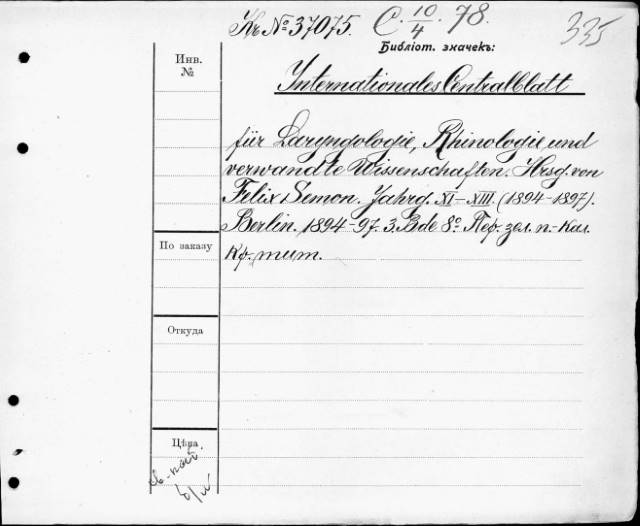 Къ № 37075. C. 10/4. 78.
335
Библіот. значекъ:
Инв. №
Internationales Centralblatt
für Laryngologie, Rhinologie und
verwandte Wissenschaften. Hrsg. von
Felix Semon. Jahrg. XI–XIII. (1894–1897).
Berlin. 1894–97. 3. Bde 8º. Пер. зел. п.-кал.
Кр. тит.
По заказу
Откуда
Цѣна